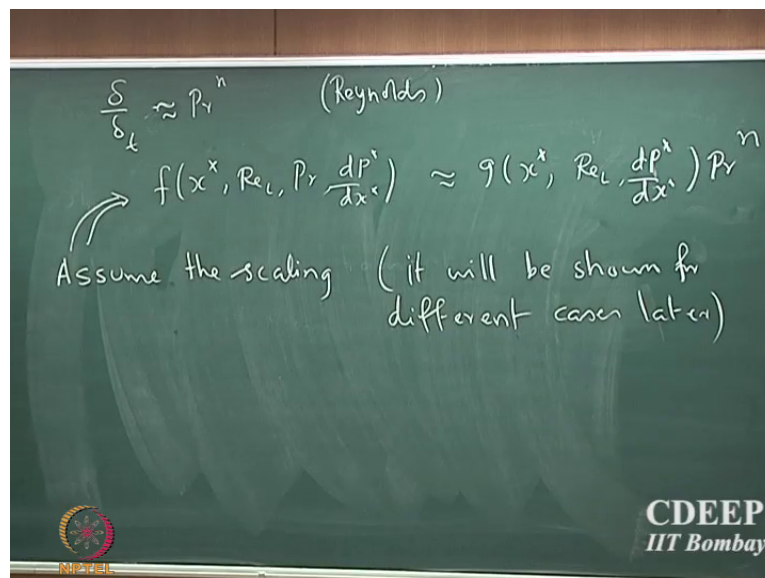 δ/δ_t ≈ Pr^n (Reynolds)
f(x*, Re_L, Pr, dp*/dx*) ≈ g(x*, Re_L, dp*/dx*) Pr^n
Assume the scaling (it will be shown for
different cases later)
CDEEP
IIT Bombay
NPTEL